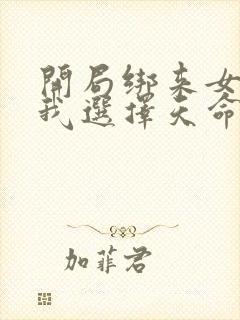 開局綁來女
我選擇天命
加菲君